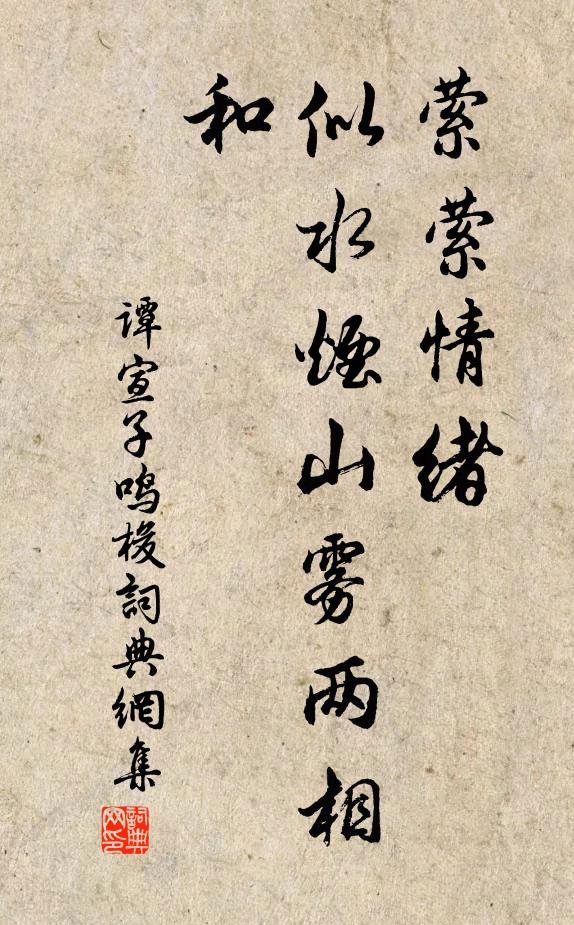 萦萦情绪
似水烟山雾两相
和
谭宣子鸣梭詞典網集
詞典
网印